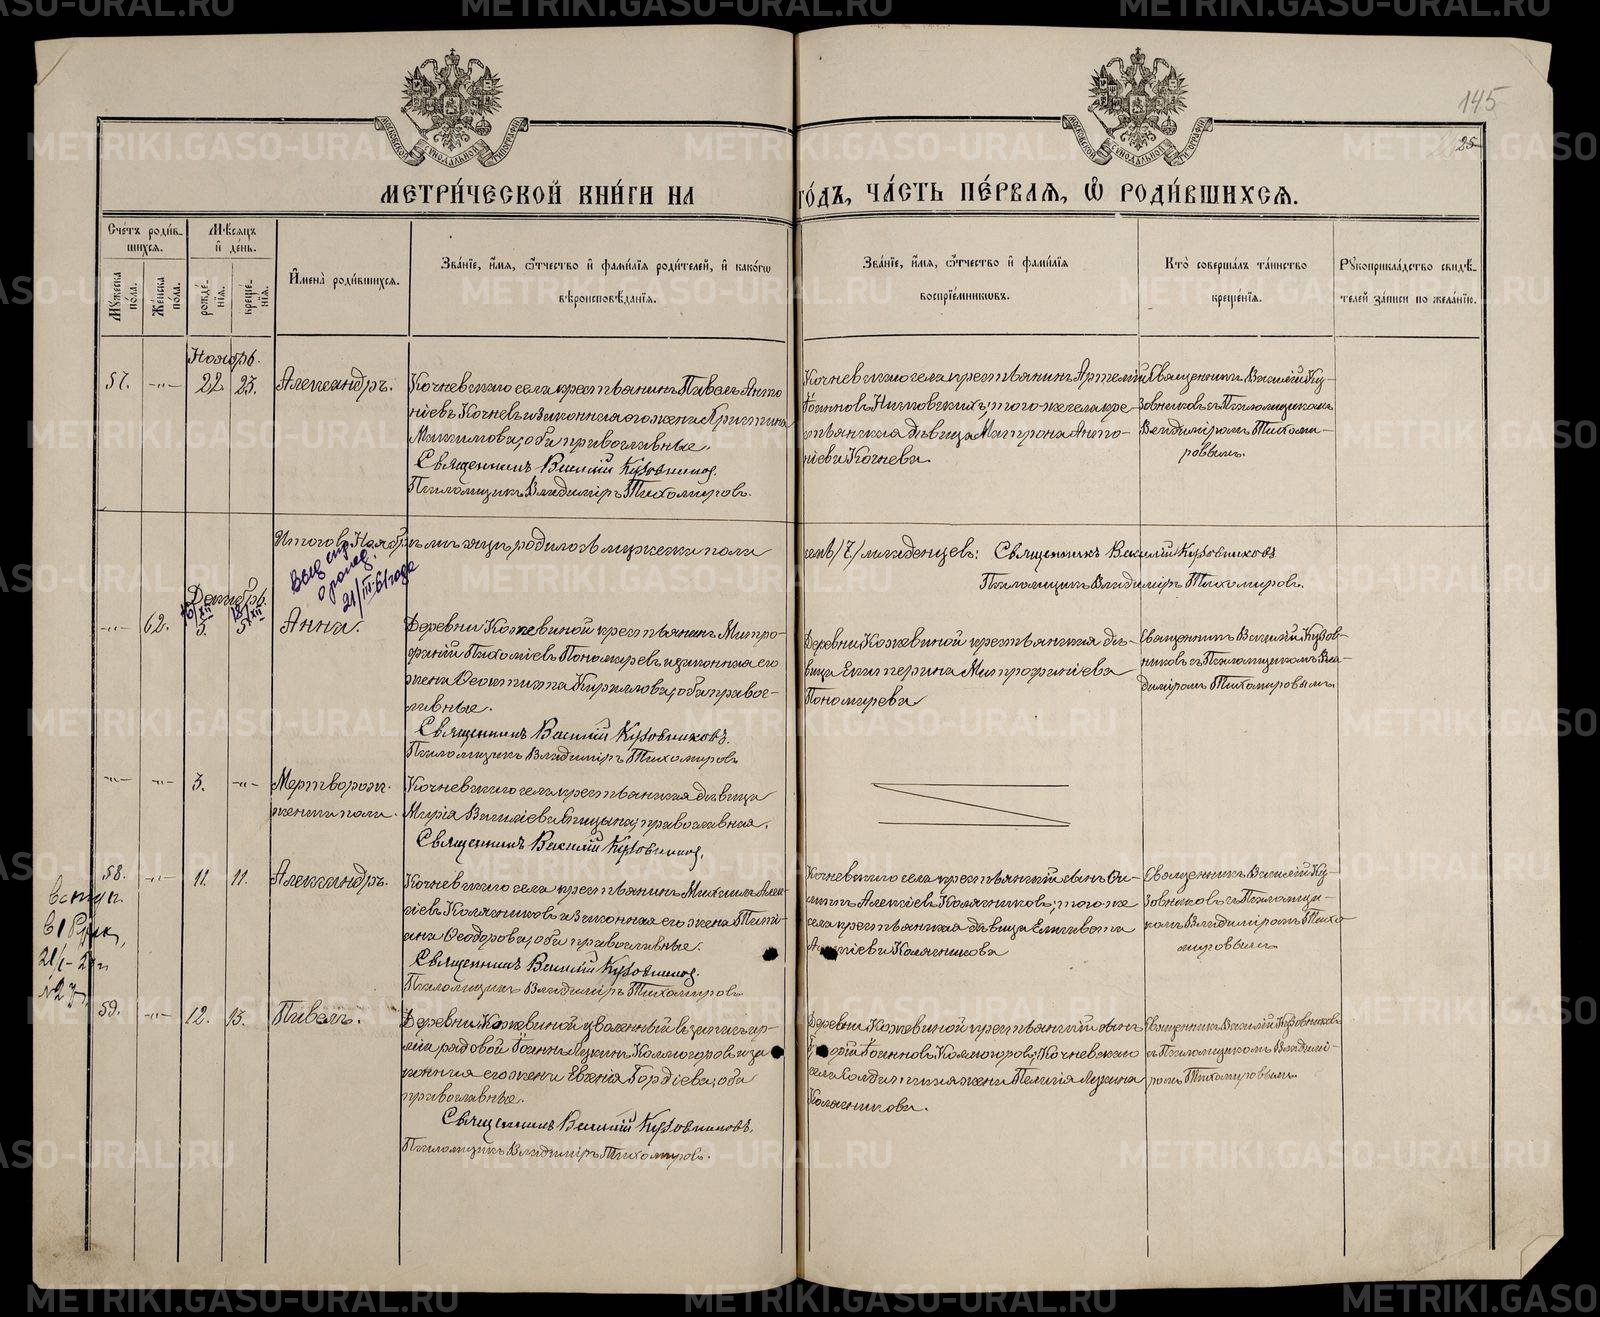 METRIKI.GASO-URAL.RU
145
25
МОСКОВСКОЙ СѴНОДАЛЬНОЙ ТИПОГРАФІИ
МЕТРИ́ЧЕСКОЙ КНИ́ГИ НА ГО́ДЪ, ЧА́СТЬ ПЕ́РВАЯ, Ѽ РОДИ́ВШИХСЯ.
Сче́тъ роди́в-
шихся.
Мѣ́сяцъ
и҆ де́нь.
Мꙋ́жеска по́ла.
Же́нска по́ла.
рожде́-
нія.
креще́-
нія.
И҆мена̀ роди́вшихся.
Зва́ніе, и҆́мя, ѻ҆́тчество и҆ фами́лія роди́телей, и҆ како́гѡ
вѣроисповѣ́данія.
Зва́ніе, и҆́мя, ѻ҆́тчество и҆ фами́лія
воспріе́мникѡвъ.
Кто̀ соверша́лъ та́инство
креще́нія.
Рꙋкоприкла́дство свидѣ́-
телей за́писи по жела́нію.
Ноябрь.
57. -„- 22 23. Александръ.
Кочневскаго села крестьянинъ Павелъ Анто-
ніевъ Кочневъ и законная его жена Христина
Максимова, оба православные.
Священникъ Василій Кузовниковъ.
Псаломщикъ Владиміръ Тихомировъ.
Кочневскаго села крестьянинъ Артемій
Іоанновъ; того-же села кре-
стьянская дѣвица Матрона Анто-
ніева Кочнева.
Священникъ Василій Ку-
зовниковъ съ Псаломщикомъ
Владиміромъ Тихоми-
ровымъ.
Итого въ Ноябрѣ мѣсяцѣ родилось мужеска пола
семь /7/ младенцевъ: Священникъ Василій Кузовниковъ
Псаломщикъ Владиміръ Тихомировъ.
21/III-61 года
Декабрь.
-„- 62. 3. 5. Анна.
Деревни Кожевиной крестьянинъ Митро-
фаній Пономаревъ и законная его
жена Кириллова, оба правос-
лавные.
Священникъ Василій Кузовниковъ.
Псаломщикъ Владиміръ Тихомировъ.
Деревни Кожевиной крестьянская дѣ-
вица Екатерина Митрофаніева
Пономарева
Священникъ Василій Кузов-
никовъ съ Псаломщикомъ Вла-
диміромъ Тихомировымъ.
-„- -„- 3. -„- Мертворож-
Кочневскаго села крестьянская дѣвица
Марія Василіева, православная.
Священникъ Василій Кузовниковъ.
58. -„- 11. 11. Александръ.
Кочневскаго села крестьянинъ Михаилъ Алек-
сіевъ Колясниковъ и законная его жена Тати-
ана Ѳеодорова, оба православные.
Священникъ Василій Кузовниковъ.
Псаломщикъ Владиміръ Тихомировъ.
Кочневскаго села крестьянскій сынъ
Алексіевъ Колясниковъ; того же
села крестьянская дѣвица Елисавета
Колясникова
Священникъ Василій Ку-
зовниковъ съ Псаломщи-
комъ Владиміромъ Тихо-
мировымъ
59. -„- 12. 15. Павелъ.
Деревни Кожевиной уволенный въ запасъ ар-
міи рядовой Іоаннъ Лукинъ Колмогоровъ и за-
конная его жена Евгенія Гордіева, оба
православные.
Священникъ Василій Кузовниковъ.
Псаломщикъ Владиміръ Тихомировъ.
Деревни Кожевиной крестьянскій сынъ
Іоанновъ Колмогоровъ; Кочневскаго
села солдатская жена Пелагія Лукина
Колясникова.
Священникъ Василій Кузовниковъ
съ Псаломщикомъ Владимі-
ромъ Тихомировымъ.